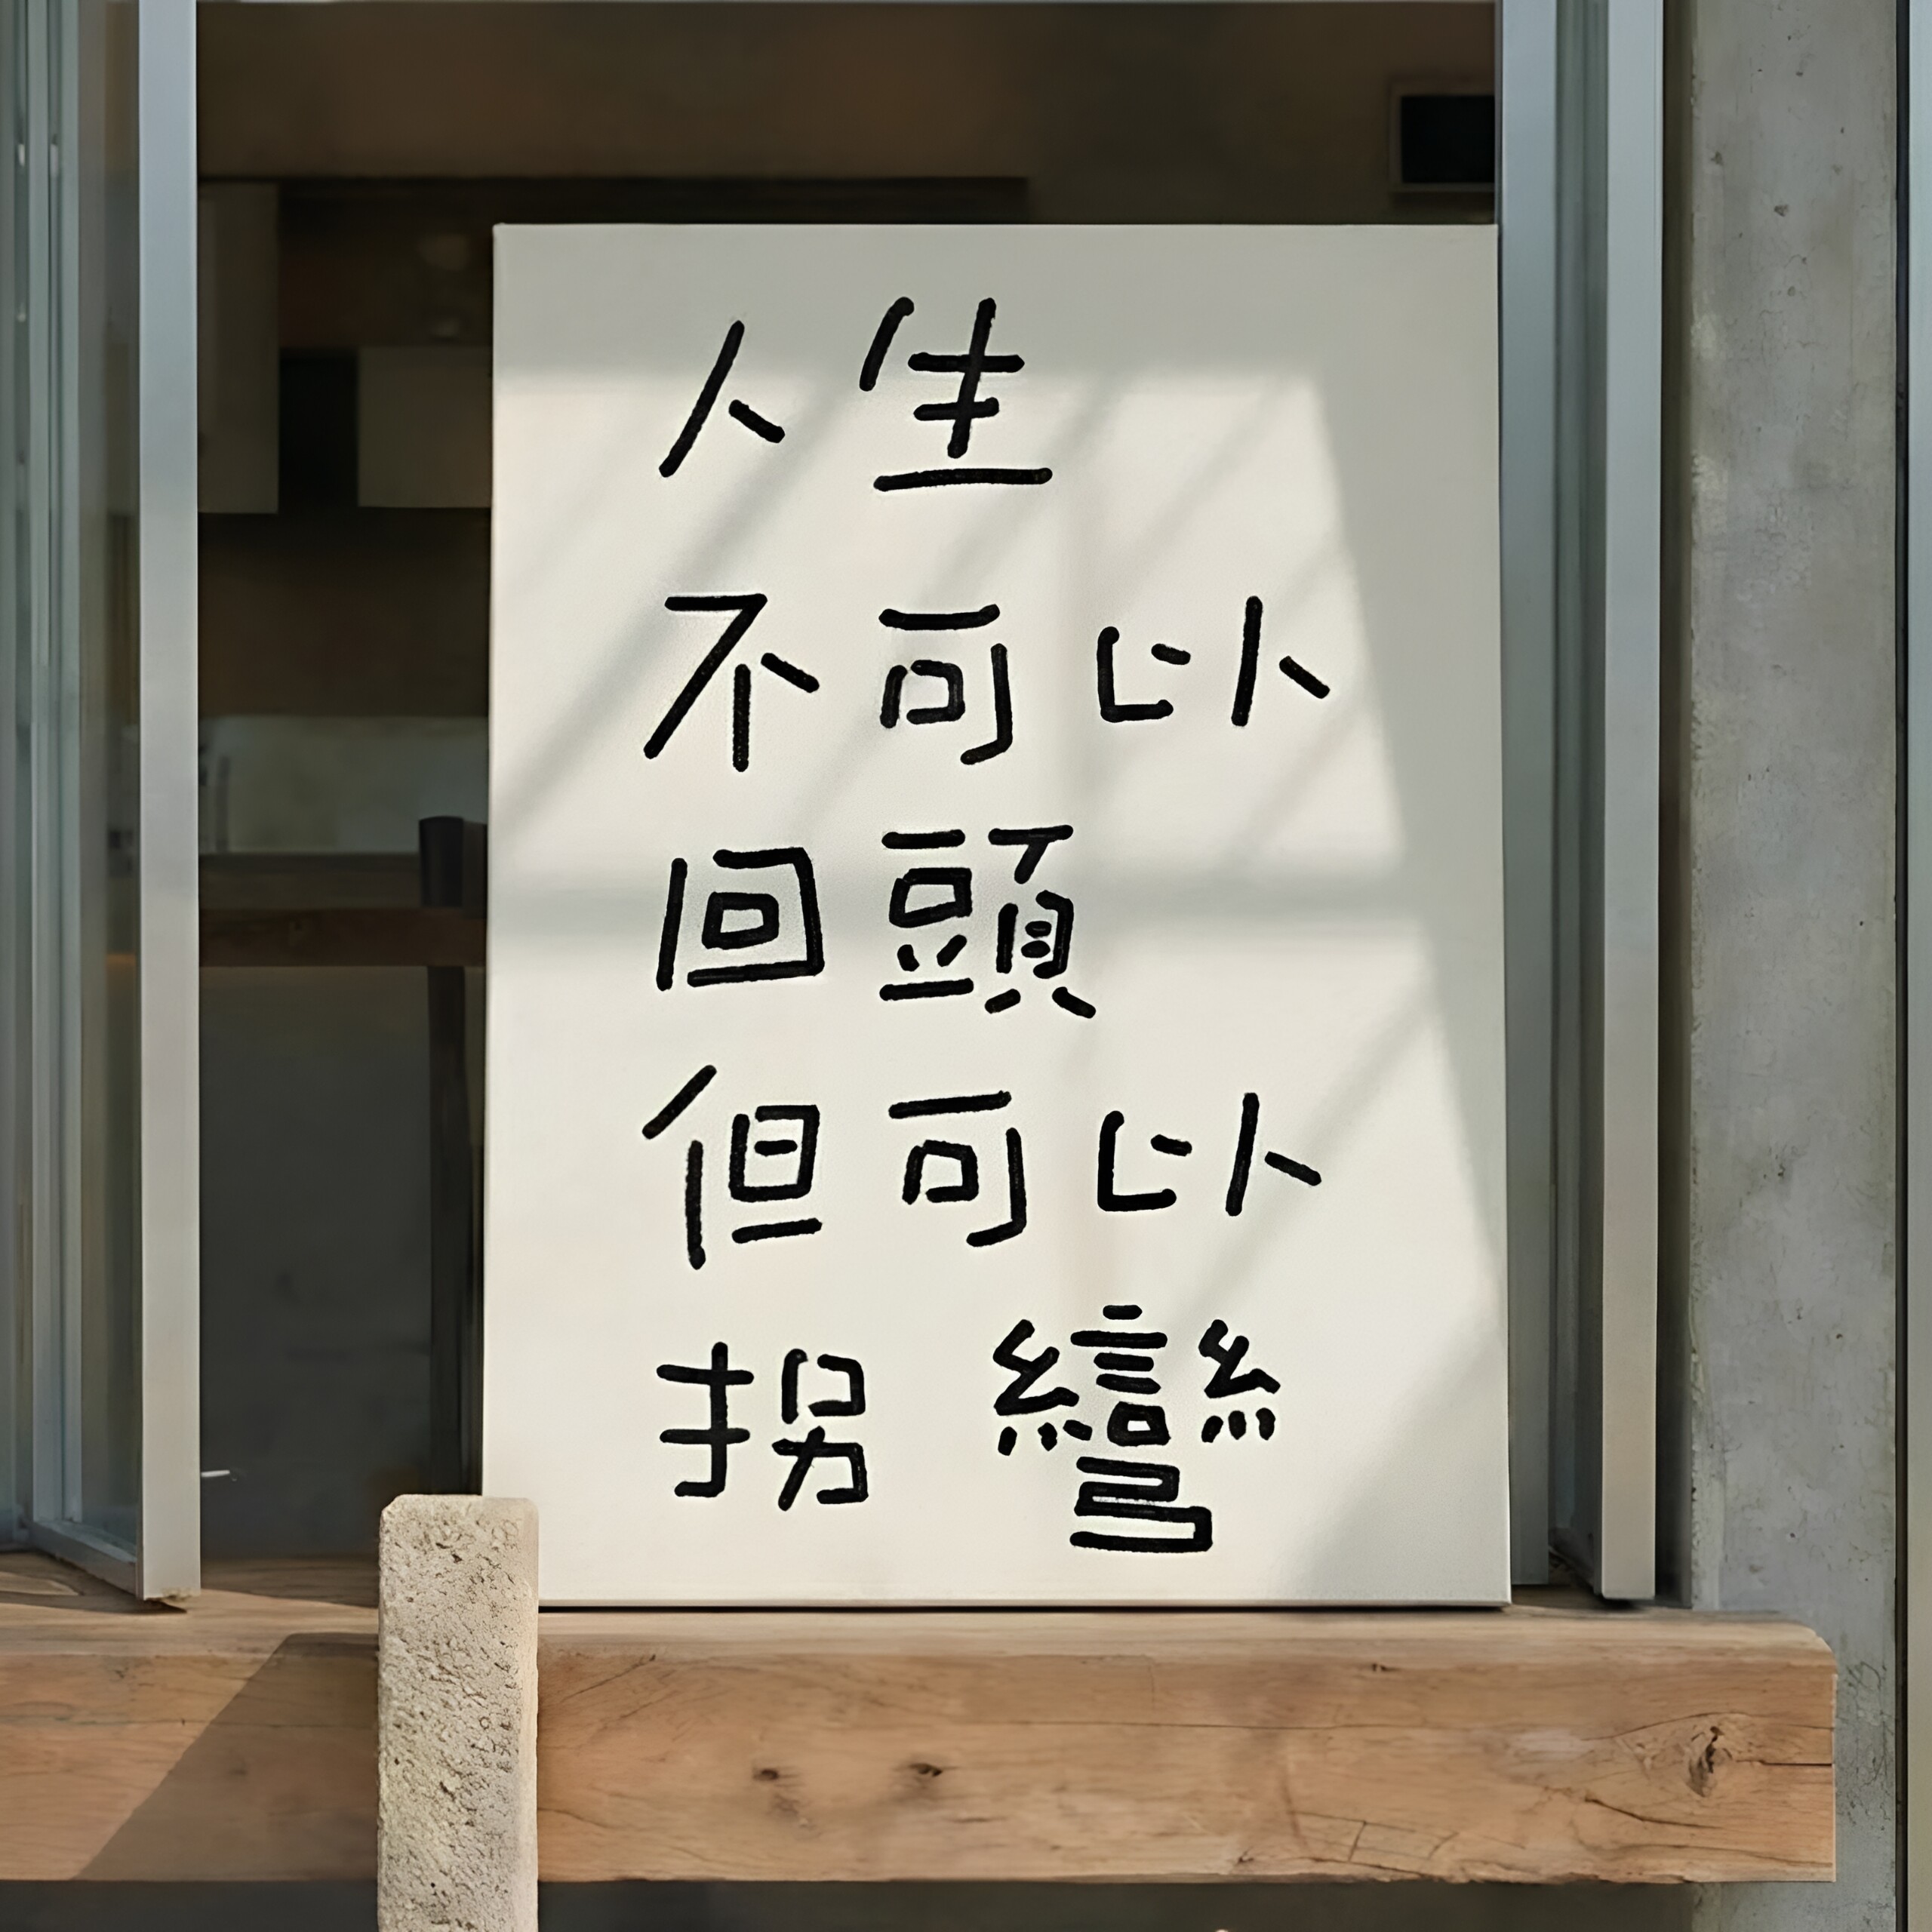 人生
不可以
回頭
但可以
拐彎